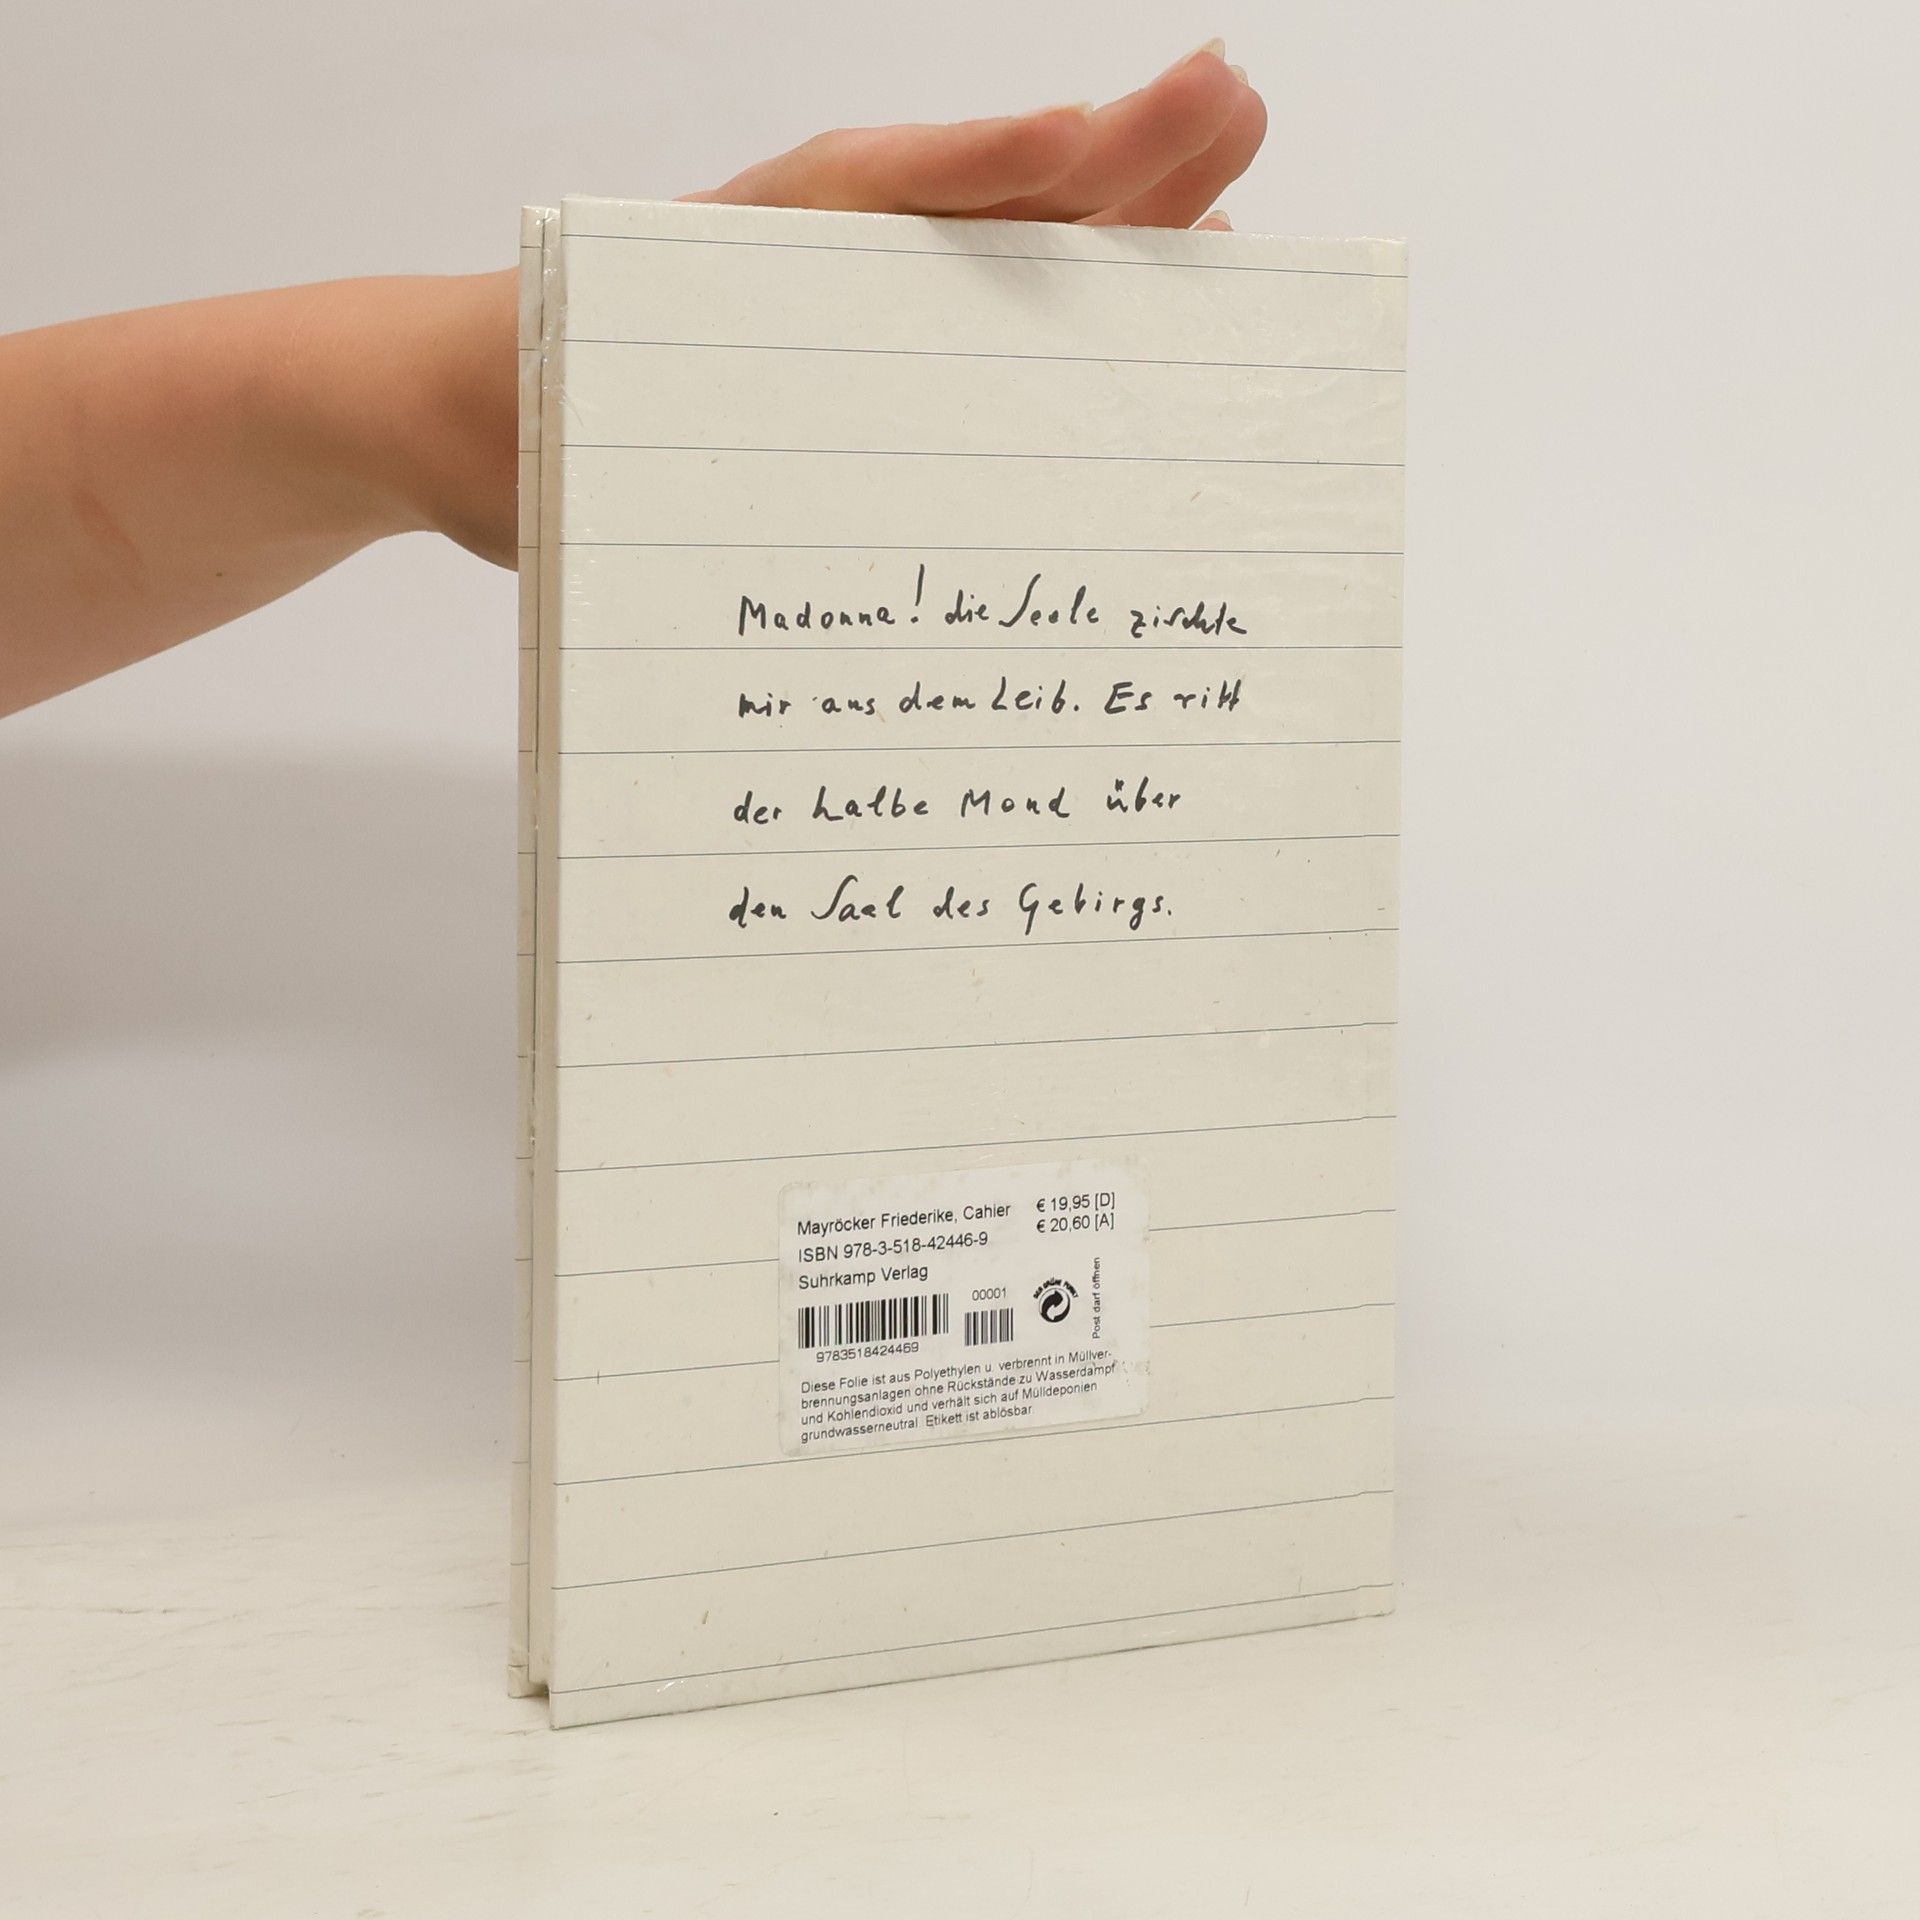 Madonna! die Seele zischte
mir aus dem Leib. Es ritt
der halbe Mond über
den Saal des Gebirgs.
Mayröcker Friederike, Cahier € 19,95 [D]
€ 20,60 [A]
ISBN 978-3-518-42446-9
Suhrkamp Verlag
00001
DER GRÜNE PUNKT
Post darf öffnen
9783518424469
Diese Folie ist aus Polyethylen u. verbrennt in Müllver-
brennungsanlagen ohne Rückstände zu Wasserdampf
und Kohlendioxid und verhält sich auf Mülldeponien
grundwasserneutral. Etikett ist ablösbar.